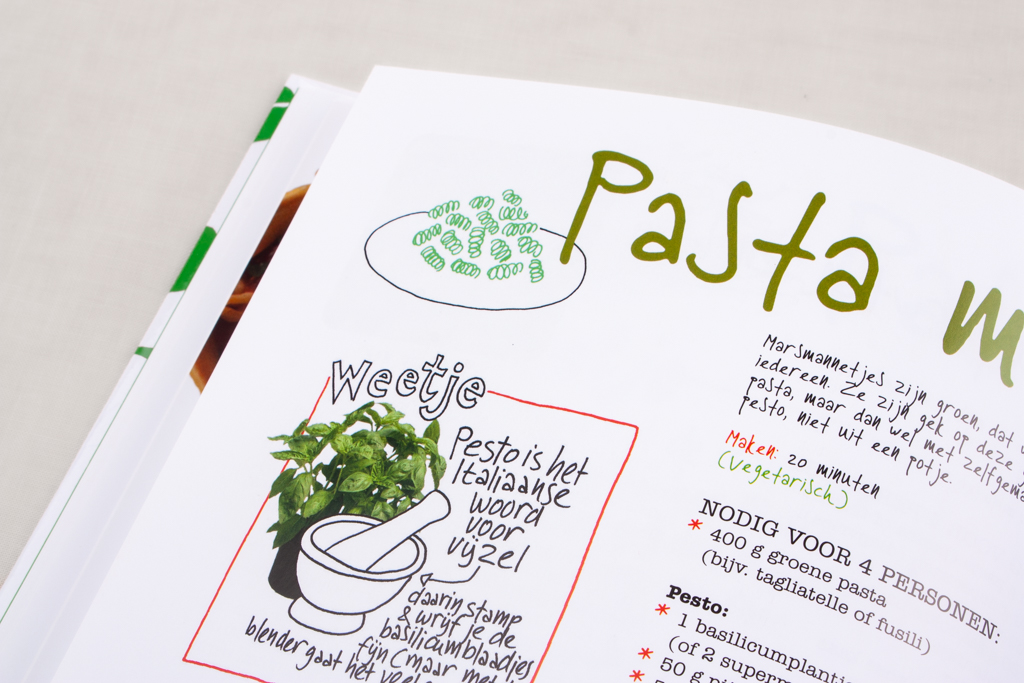 Pasta m
Weetje
Pesto is het
Italiaanse
woord
voor
vijzel
daarin stamp
& wrijf je de
basilicumblaadjes
fijn (maar met
blender gaat het veel
Marsmannetjes zijn groen, dat
iedereen. Ze zijn gek op deze
pasta, maar dan wel met zelfgema
pesto, niet uit een potje.
Maken: 20 minuten
(Vegetarisch)
NODIG VOOR 4 PERSONEN:
* 400 g groene pasta
(bijv. tagliatelle of fusili)
Pesto:
* 1 basilicumplanti
(of 2 superm
* 50 g pi
*